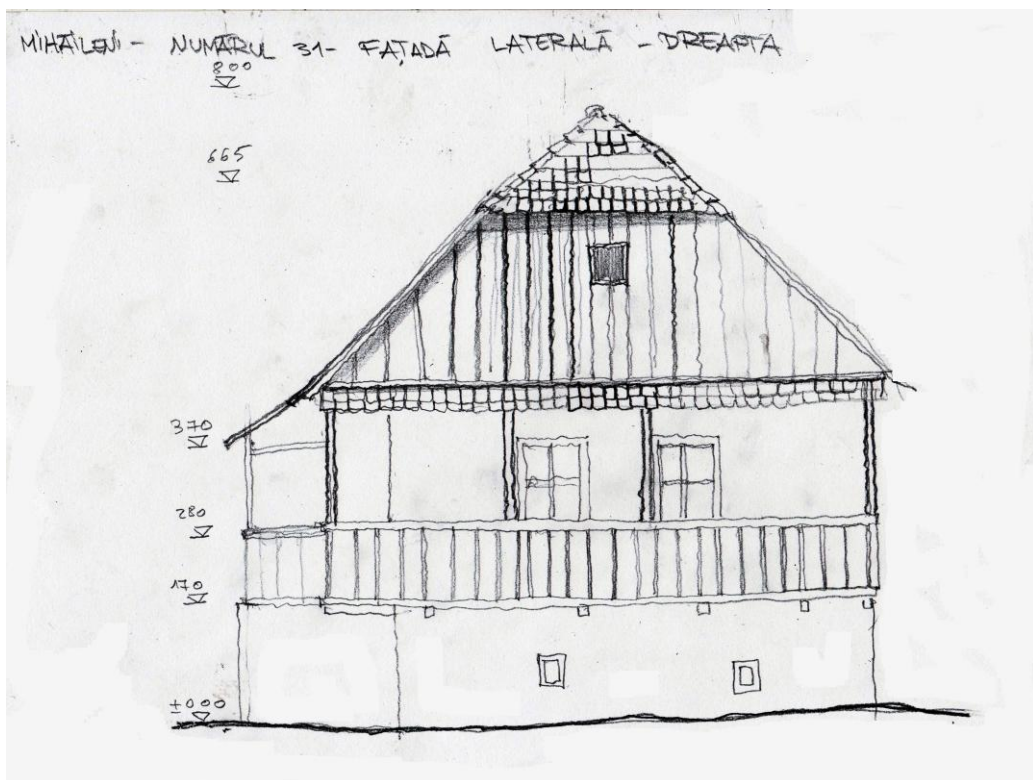 MIHĂILENI - NUMĂRUL 31 - FAȚADĂ LATERALĂ - DREAPTA
800
665
370
280
170
±000